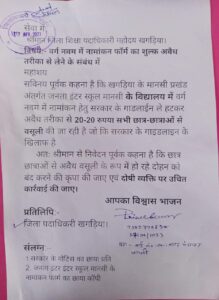 सेवा में
श्रीमान जिला शिक्षा पदाधिकारी महोदय खगड़िया।
विषय:- वर्ग नवम में नामांकन फॉर्म का शुल्क अवैध
तरीका से लेने के संबंध में
महाशय
सविनय पूर्वक कहना है कि खगड़िया के मानसी प्रखंड
अंतर्गत जनता इंटर स्कूल मानसी के विद्यालय में वर्ग
नवम में नामांकन हेतु सरकार के गाइडलाईन ले हटकर
अवैध तरीका से 20-20 रूपया सभी छात्र-छात्राओं से
वसूली की जा रही है जो कि सरकार के गाइडलाइन के
खिलाफ है
अतः श्रीमान से निवेदन पूर्वक कहना है कि छात्र
छात्राओं से अवैध वसूली के रूप में हो रहे दोहन को
बंद करने की कृपा की जाए एवं दोषी व्यक्ति पर उचित
कार्रवाई की जाए।
आपका विश्वास भाजन
प्रतिलिपि -
जिला पदाधिकारी खगड़िया।
संलग्न -
1 सरकार के नोटिस का छाया प्रति
2 जनता इंटर स्कूल मानसी के
नामांकन फॉर्म का छाया कॉपी